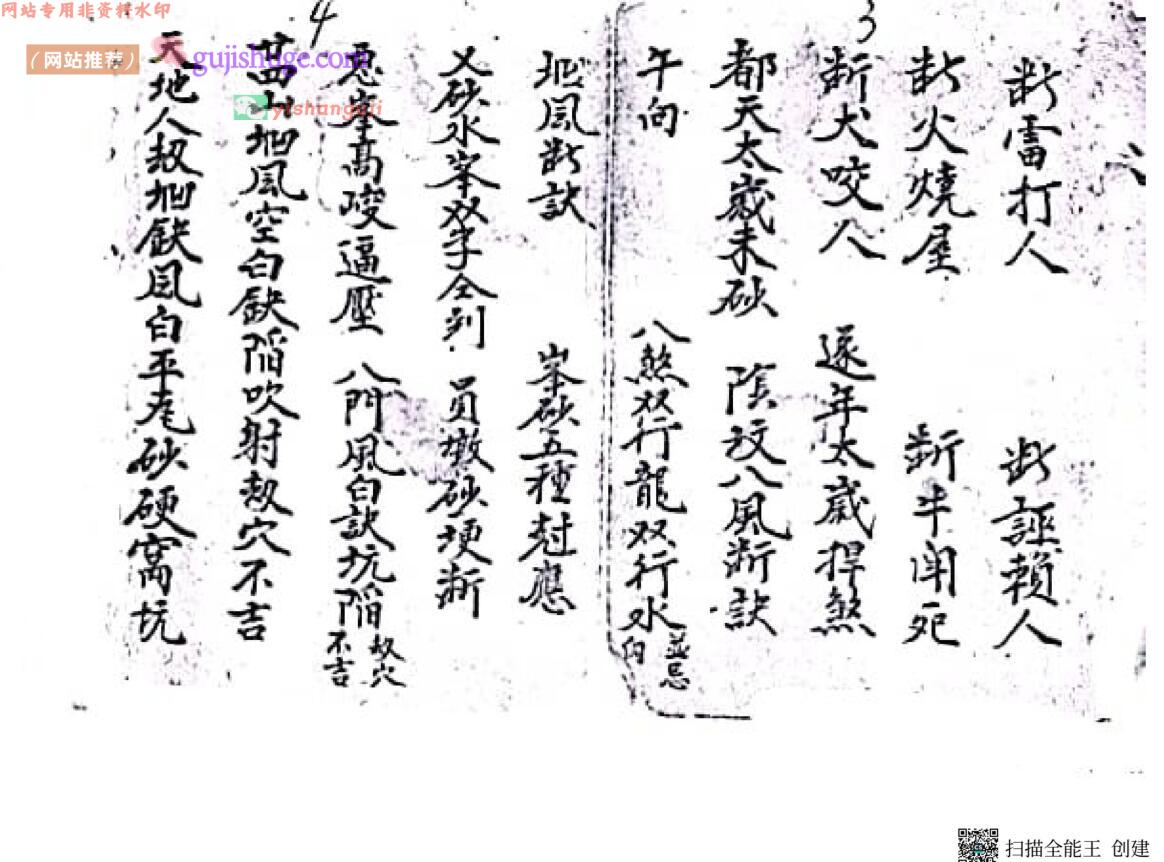 网站专用非资料水印
（网站推荐）
gujishuge.com
yishanguji
3
断雷打人　断誣賴人
断火燒屋　断牛闱死
断犬咬人　逐年太歲捍煞
都天太歲未砂　陰坟八風断訣
午向　八煞双行龍双行水並忌向
凹風断訣　峯砂五種對應
叉砂水峯双字全到　員墩砂埂断
4
惡峯高峻逼壓　八門風白訣坑陷劫穴不吉
廿四山凹風空白缺陷吹射劫穴不吉
天地人劫凹缺風白平尾砂硬窩坑
扫描全能王 创建